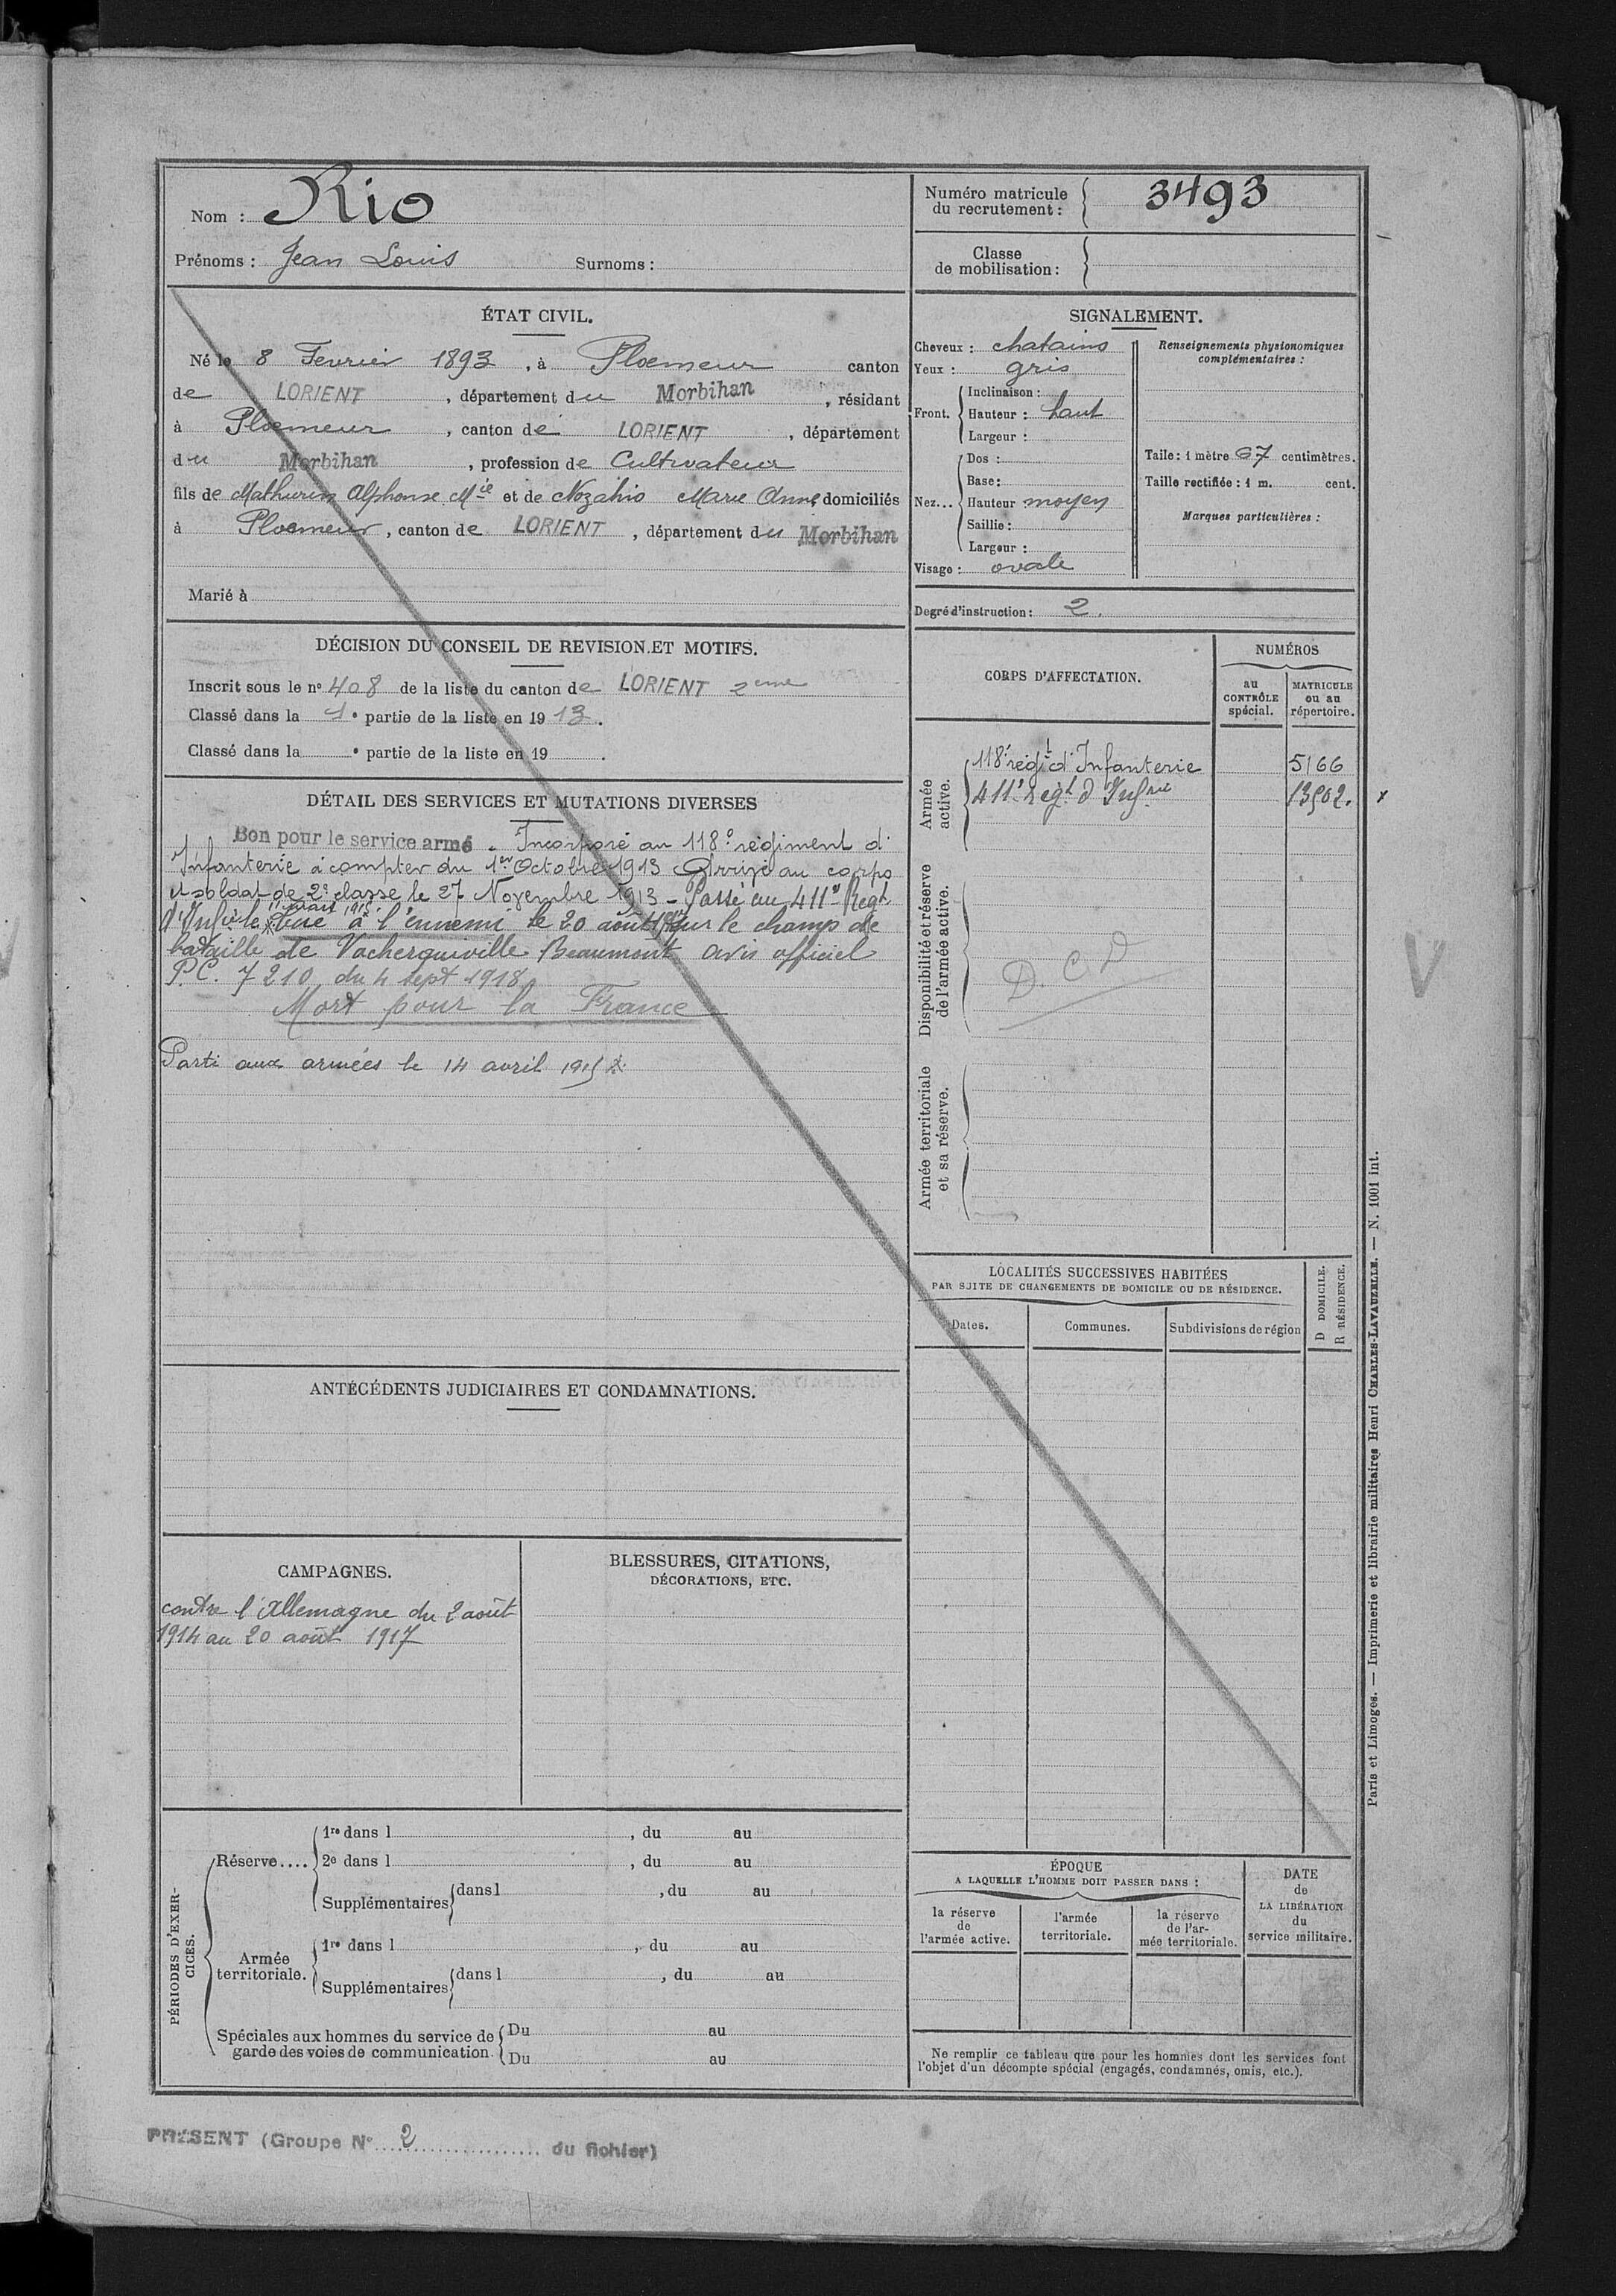 Nom : Rio
Prénoms : Jean Louis Surnoms :
Numéro matricule du recrutement : 3493
Classe de mobilisation :
ÉTAT CIVIL.
Né le 8 Fevrier 1893, à Ploemeur canton
de LORIENT, département du Morbihan, résidant
à Ploemeur, canton de LORIENT, département
du Morbihan, profession de Cultivateur
fils de Mathurin Alphonse Mie et de Nozahio Marie Anne domiciliés
à Ploemeur, canton de LORIENT, département du Morbihan
Marié à
SIGNALEMENT.
Cheveux : chatains
Yeux : gris
Front. Inclinaison :
Hauteur : haut
Largeur :
Nez... Dos :
Base :
Hauteur moyen
Saillie :
Largeur :
Visage : ovale
Renseignements physionomiques
complémentaires :
Taile : 1 mètre 67 centimètres.
Taille rectifiée : 1 m. cent.
Marques particulières :
Degré d'instruction : 2.
DÉCISION DU CONSEIL DE REVISION ET MOTIFS.
Inscrit sous le n° 408 de la liste du canton de LORIENT 2eme
Classé dans la 1e partie de la liste en 1913.
Classé dans la e partie de la liste en 19 .
DÉTAIL DES SERVICES ET MUTATIONS DIVERSES
Bon pour le service armé. Incorporé au 118e régiment d'
Infanterie à compter du 1er Octobre 1913 Arrivé au corps
et soldat de 2e classe le 27 Novembre 1913 - Passé au 411e Regt
d'Infie le 11 mars 1915 Tué à l'ennemi le 20 août 1917 sur le champ de
bataille de Vacherauville Beaumont avis officiel
P.C. 7210 du 4 sept 1918
Mort pour la France
Parti aux armées le 14 avril 1915
CORPS D'AFFECTATION.
NUMÉROS
au CONTRÔLE spécial.
MATRICULE ou au répertoire.
Armée active.
118e régt d'Infanterie 5166
411e Regt d'Infrie 13502.
Disponibilité et réserve de l'armée active.
D. C D
Armée territoriale et sa réserve.
LOCALITÉS SUCCESSIVES HABITÉES
PAR SUITE DE CHANGEMENTS DE DOMICILE OU DE RÉSIDENCE.
Dates. Communes. Subdivisions de région
D DOMICILE.
R RÉSIDENCE.
ANTÉCÉDENTS JUDICIAIRES ET CONDAMNATIONS.
CAMPAGNES.
contre l'Allemagne du 2 août
1914 au 20 août 1917
BLESSURES, CITATIONS,
DÉCORATIONS, ETC.
PÉRIODES D'EXERCICES.
Réserve.... 1re dans l , du au
2e dans l , du au
Supplémentaires dans l , du au
Armée territoriale. 1re dans l , du au
Supplémentaires dans l , du au
Spéciales aux hommes du service de garde des voies de communication. Du au
Du au
ÉPOQUE
A LAQUELLE L'HOMME DOIT PASSER DANS :
la réserve de l'armée active.
l'armée territoriale.
la réserve de l'armée territoriale.
DATE de LA LIBÉRATION du service militaire.
Ne remplir ce tableau que pour les hommes dont les services font
l'objet d'un décompte spécial (engagés, condamnés, omis, etc.).
Paris et Limoges. — Imprimerie et librairie militaires Henri CHARLES-LAVAUZELLE. — N. 1001 int.
V
PRÉSENT (Groupe N° 2 du fichier)